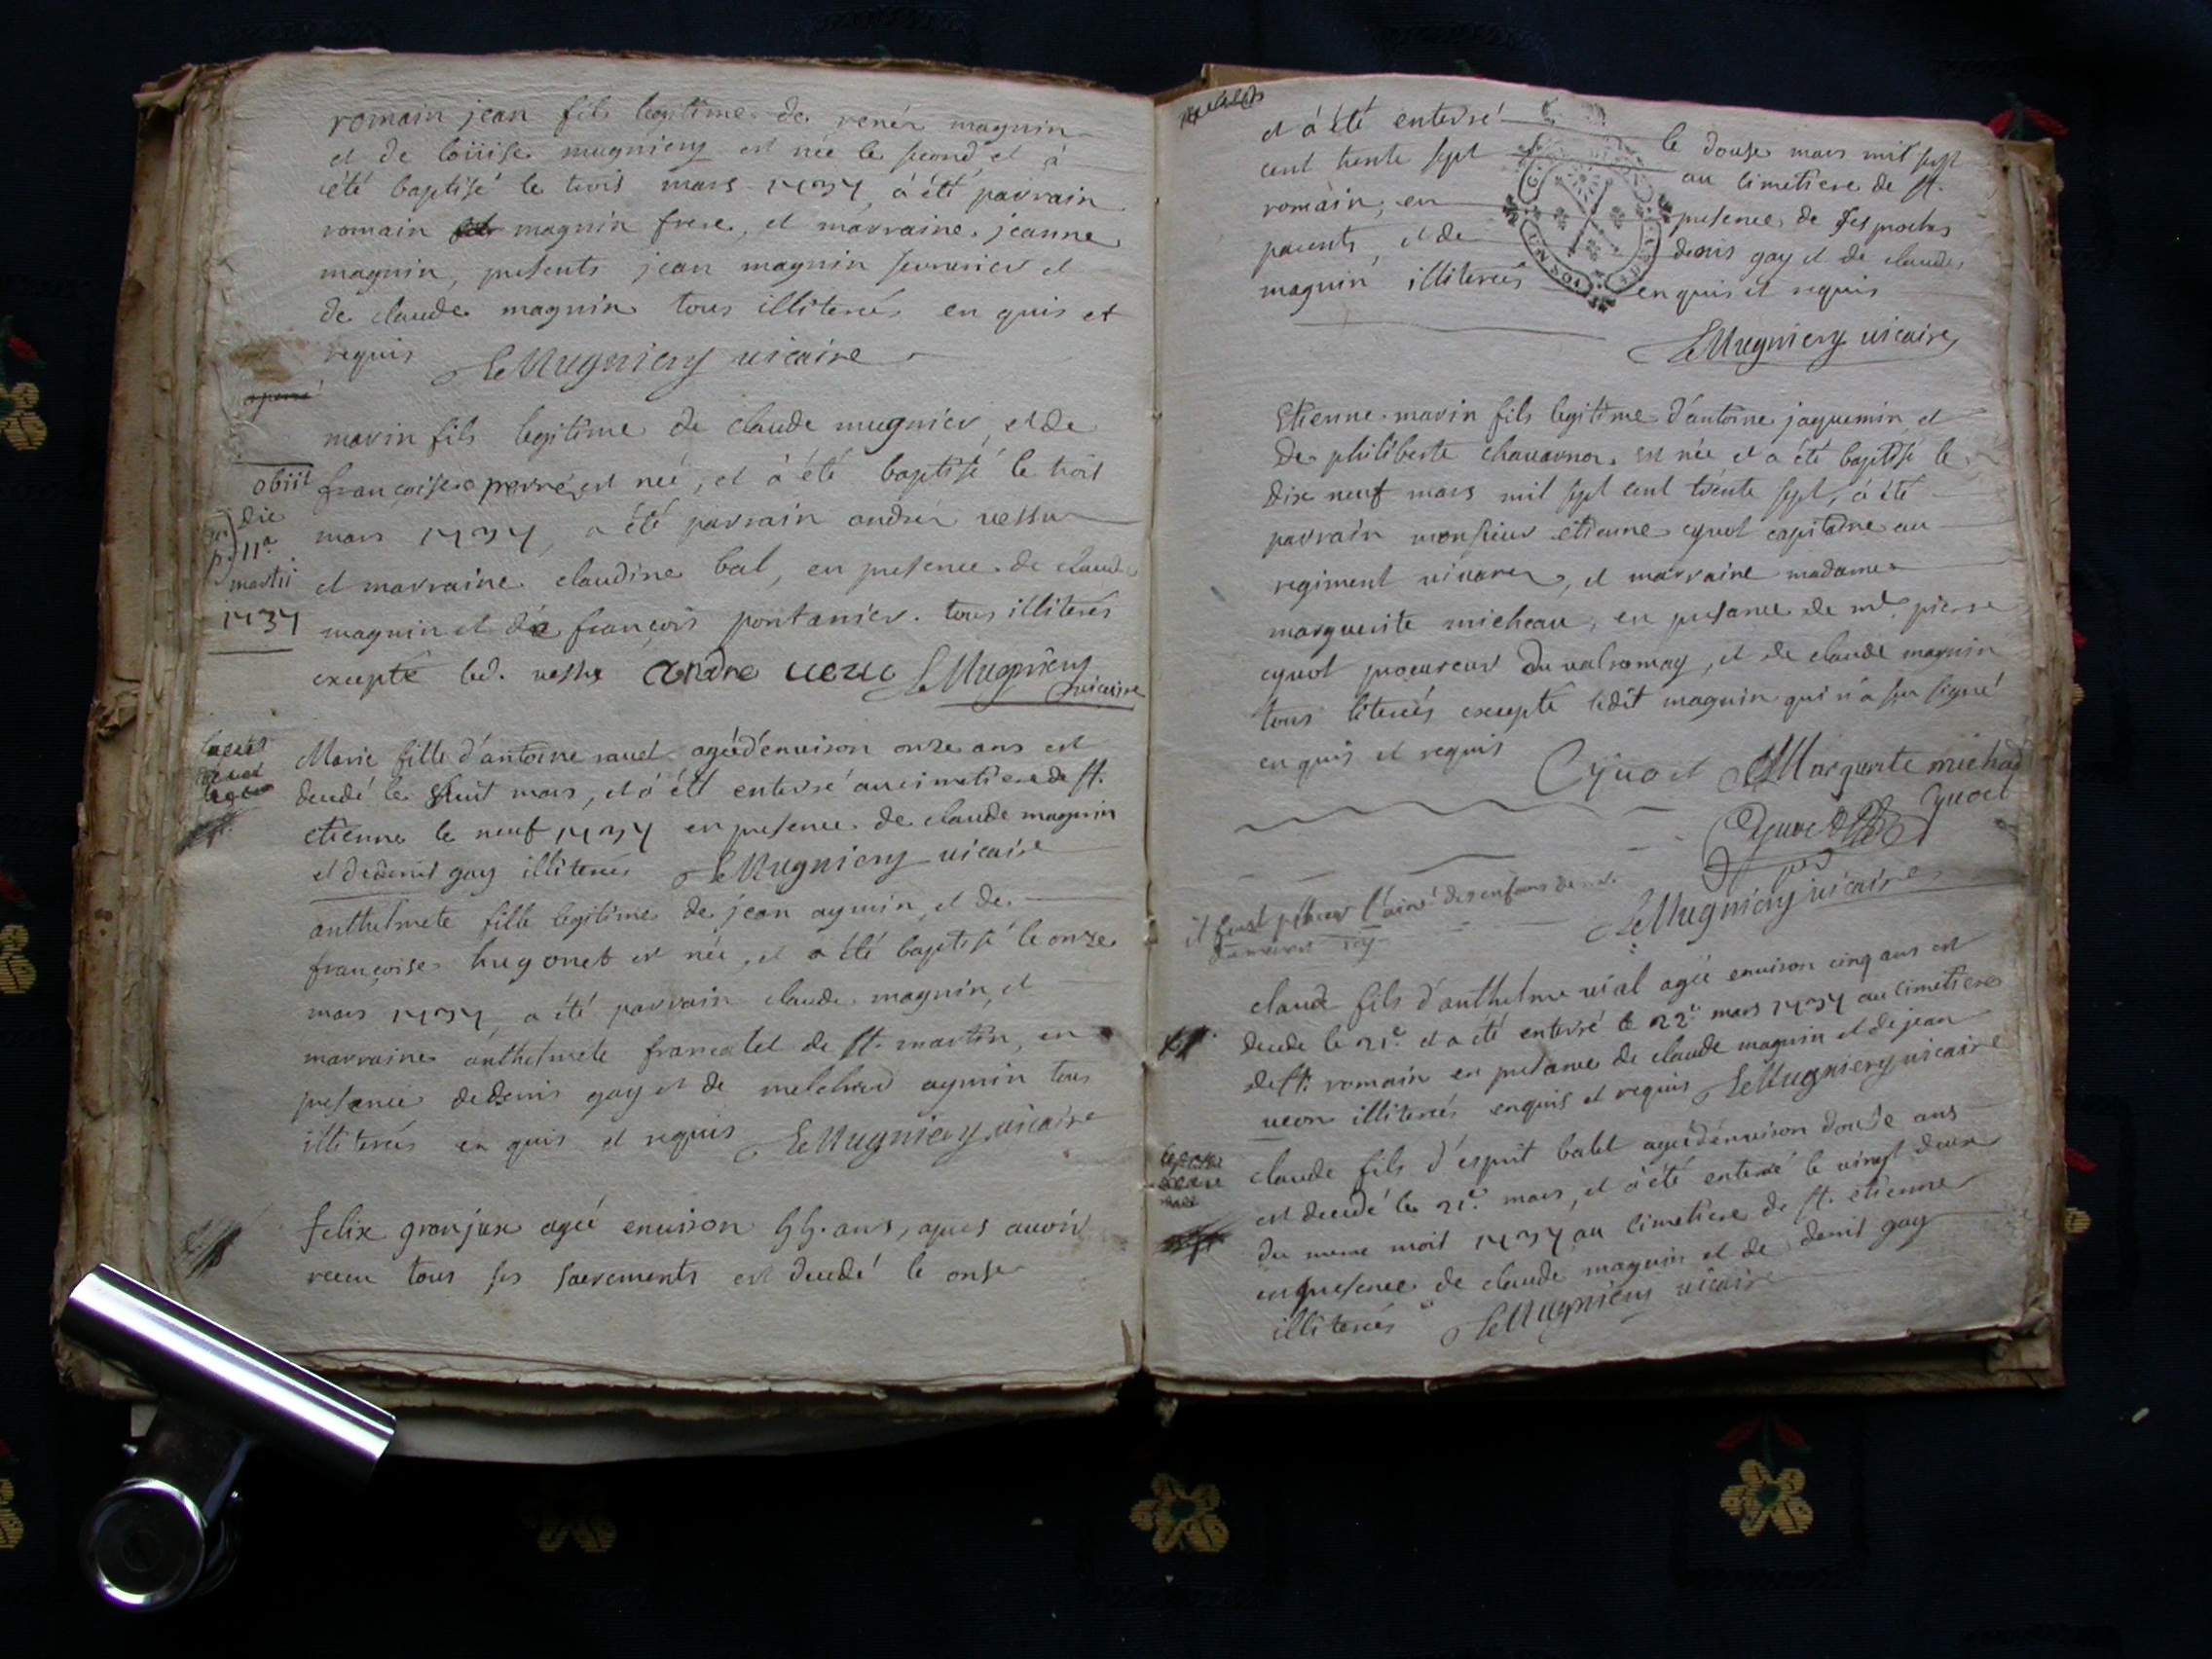 romain jean fils legitime de renér magnin
et de loüise mugniery est née le second, et à
été baptisé le trois mars 1737, à été parrain
romain magnin frere, et marraine jeanne
magnin, presents jean magnin et
de claude magnin tous illiterés en quis et
requis LeMugniery vicaire
marin fils legitime de claude mugnier, et de
obiit
die
11a
martii
1737
françoise perré est née, et à été baptisé le trois
mars 1737, a été parrain andrér vessu
et marraine claudine bal, en presence de claude
magnin et de françois pontanier. tous illiterés
excepté led. vessu andre uezu LeMugniery
vicaire
Marie fille d'antoine ravet agéé d'environ onze ans est
decedé le huit mars, et à été enterré au cimetiere de st.
etienne le neuf 1737 en presence de claude magnin
et de denis gay illiterés LeMugniery vicaire
anthelmete fille legitime de jean aymin, et de
françoise hugonet est née, et a été baptisé le onze
mars 1737, a été parrain claude magnin, et
marraine anthelmete francatel de st. martin, en
presence de denis gay et de melchior aymin tous
illiterés en quis et requis LeMugniery vicaire
felix granjux agéé environ 55. ans, apres avoir
receu tous ses sacrements est decedé le onse
et à été enterré le douse mars mil sept
cent trente sept au cimetiere de st.
romain, en presence de ses proches
parents, et de denis gay et de claude
magnin illiterés en quis et requis
LeMugniery vicaire
Etienne marin fils legitime d'antoine jaquemin, et
de philiberte chavarnor est née et a été baptisé le
dix neuf mars mil sept cent trente sept, à été
parrain monsieur etienne cyvot capitaine au
regiment vivarer, et marraine madame
marguerite micheau, en presance de mr. pierre
cyvot procureur du valromay, et de claude magnin
tous literés excepté ledit magnin qui n'a sçu signé
en quis et requis Cyvoct Marguerite michaud
Cyvoct
LeMugniery vicaire
claude fils d'anthelme vial agéé environ cinq ans est
decede le 21e. et a été enterré le 22e. mars 1737 au cimetiere
de st. romain en presance de claude magnin et de jean
illiterés enquis et requis LeMugniery vicaire
claude fils d'esprit balet agéé d'environ douse ans
est decedé le 21e. mars, et à été enterré le vingt deux
du meme mois 1737 au cimetiere de st. etienne
en presence de claude magnin et de denis gay
illiterés LeMugniery vicaire